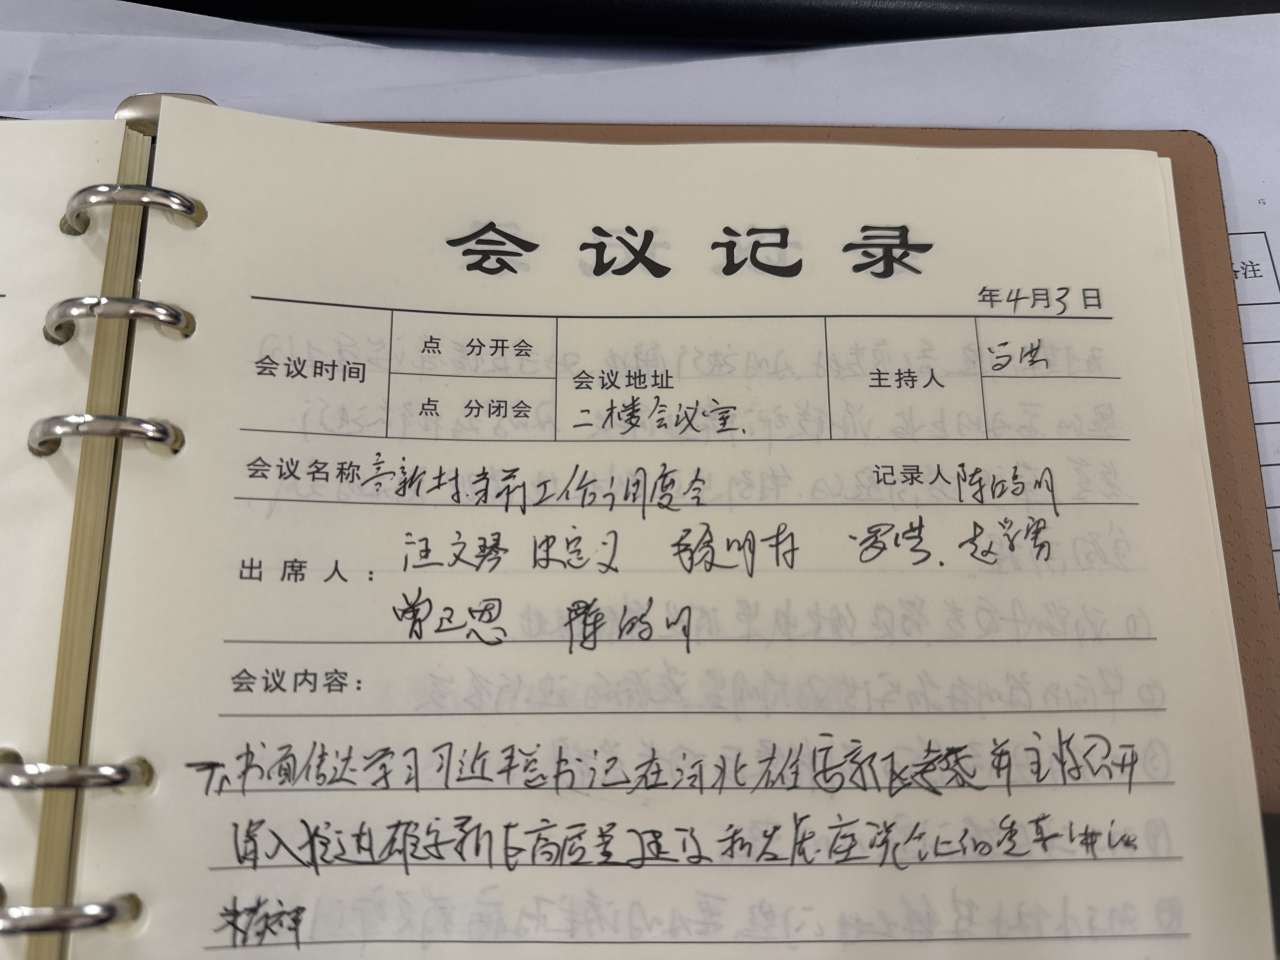 会议记录
年4月3日
会议时间
点 分开会
点 分闭会
会议地址
二楼会议室.
主持人
会议名称 高新村当前工作调度会
记录人 陈鸣
出席人： 汪文琴 明存 罗洪. 赵学勇
曾正恩 陈鸣
会议内容：
一、书面传达学习习近平总书记在河北雄安新区考察并主持召开
深入推进雄安新区高质量建设和发展座谈会上的重要讲话
精神
备注